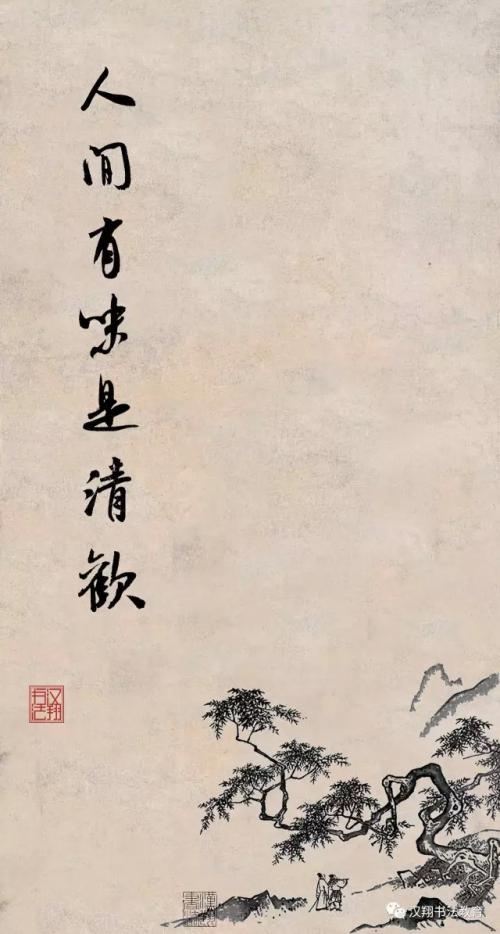 人间有味是清歡
汉翔书法
汉翔书法教育